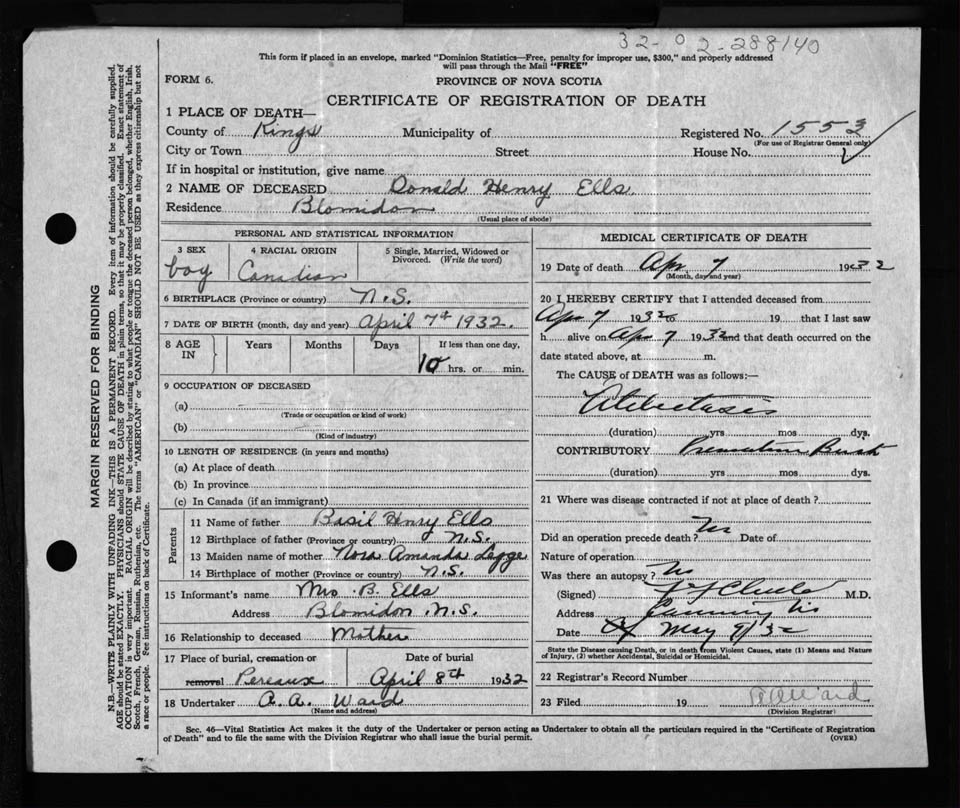 32-02-288140
This form if placed in an envelope, marked "Dominion Statistics—Free, penalty for improper use, $300," and properly addressed
will pass through the Mail "FREE"
FORM 6.
PROVINCE OF NOVA SCOTIA
CERTIFICATE OF REGISTRATION OF DEATH
1 PLACE OF DEATH—
County of Kings Municipality of Registered No. 1553
(For use of Registrar General only)
City or Town Street House No.
If in hospital or institution, give name
2 NAME OF DECEASED Donald Henry Ells
Residence Blomidon
(Usual place of abode)
PERSONAL AND STATISTICAL INFORMATION
3 SEX 4 RACIAL ORIGIN 5 Single, Married, Widowed or
Divorced. (Write the word)
boy Canadian
6 BIRTHPLACE (Province or country) N.S.
7 DATE OF BIRTH (month, day and year) April 7th 1932.
8 AGE IN Years Months Days If less than one day,
10 hrs. or min.
9 OCCUPATION OF DECEASED
(a)
(Trade or occupation or kind of work)
(b)
(Kind of industry)
10 LENGTH OF RESIDENCE (in years and months)
(a) At place of death
(b) In province
(c) In Canada (if an immigrant)
Parents
11 Name of father Basil Henry Ells
12 Birthplace of father (Province or country) N.S.
13 Maiden name of mother Nora Amanda Legge
14 Birthplace of mother (Province or country) N.S.
15 Informant's name Mrs. B. Ells
Address Blomidon N.S.
16 Relationship to deceased Mother
17 Place of burial, cremation or Date of burial
removal Pereaux April 8th 1932
18 Undertaker A. A. Ward
(Name and address)
MEDICAL CERTIFICATE OF DEATH
19 Date of death Apr 7 1932
(Month, day and year)
20 I HEREBY CERTIFY that I attended deceased from
Apr 7 1932 to 19 that I last saw
h alive on Apr 7 1932 and that death occurred on the
date stated above, at m.
The CAUSE of DEATH was as follows:—
Atelectasis
(duration) yrs mos dys.
CONTRIBUTORY Premature Birth
(duration) yrs mos dys.
21 Where was disease contracted if not at place of death?
Did an operation precede death? No Date of
Nature of operation
Was there an autopsy? No
(Signed) M.D.
Address Canning NS
Date May 9/32
State the Disease causing Death, or in death from Violent Causes, state (1) Means and Nature
of Injury, (2) whether Accidental, Suicidal or Homicidal.
22 Registrar's Record Number
23 Filed 19 Ward
(Division Registrar)
Sec. 46—Vital Statistics Act makes it the duty of the Undertaker or person acting as Undertaker to obtain all the particulars required in the "Certificate of Registration
of Death" and to file the same with the Division Registrar who shall issue the burial permit. (OVER)
MARGIN RESERVED FOR BINDING
N.B.—WRITE PLAINLY WITH UNFADING INK—THIS IS A PERMANENT RECORD. Every item of information should be carefully supplied.
AGE should be stated EXACTLY. PHYSICIANS should STATE CAUSE OF DEATH in plain terms, so that it may be properly classified. Exact statement of
OCCUPATION is very important. RACIAL ORIGIN will be described by stating to what people or tongue the deceased person belonged, whether English, Irish,
Scotch, French, German, Russian, Ruthenian, etc. The terms "AMERICAN" or "CANADIAN" SHOULD NOT BE USED as they express citizenship but not
a race or people. See instructions on back of Certificate.